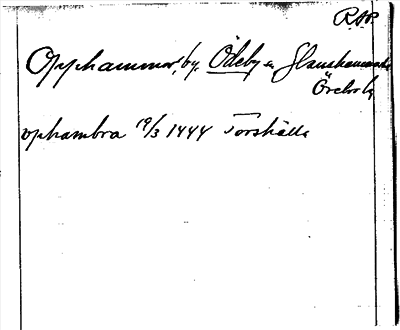 R.A.P.
Opphammar, by, Ödeby sn, Glanshammars hd
Örebro l.
ophambra 19/3 1444 Torshälla